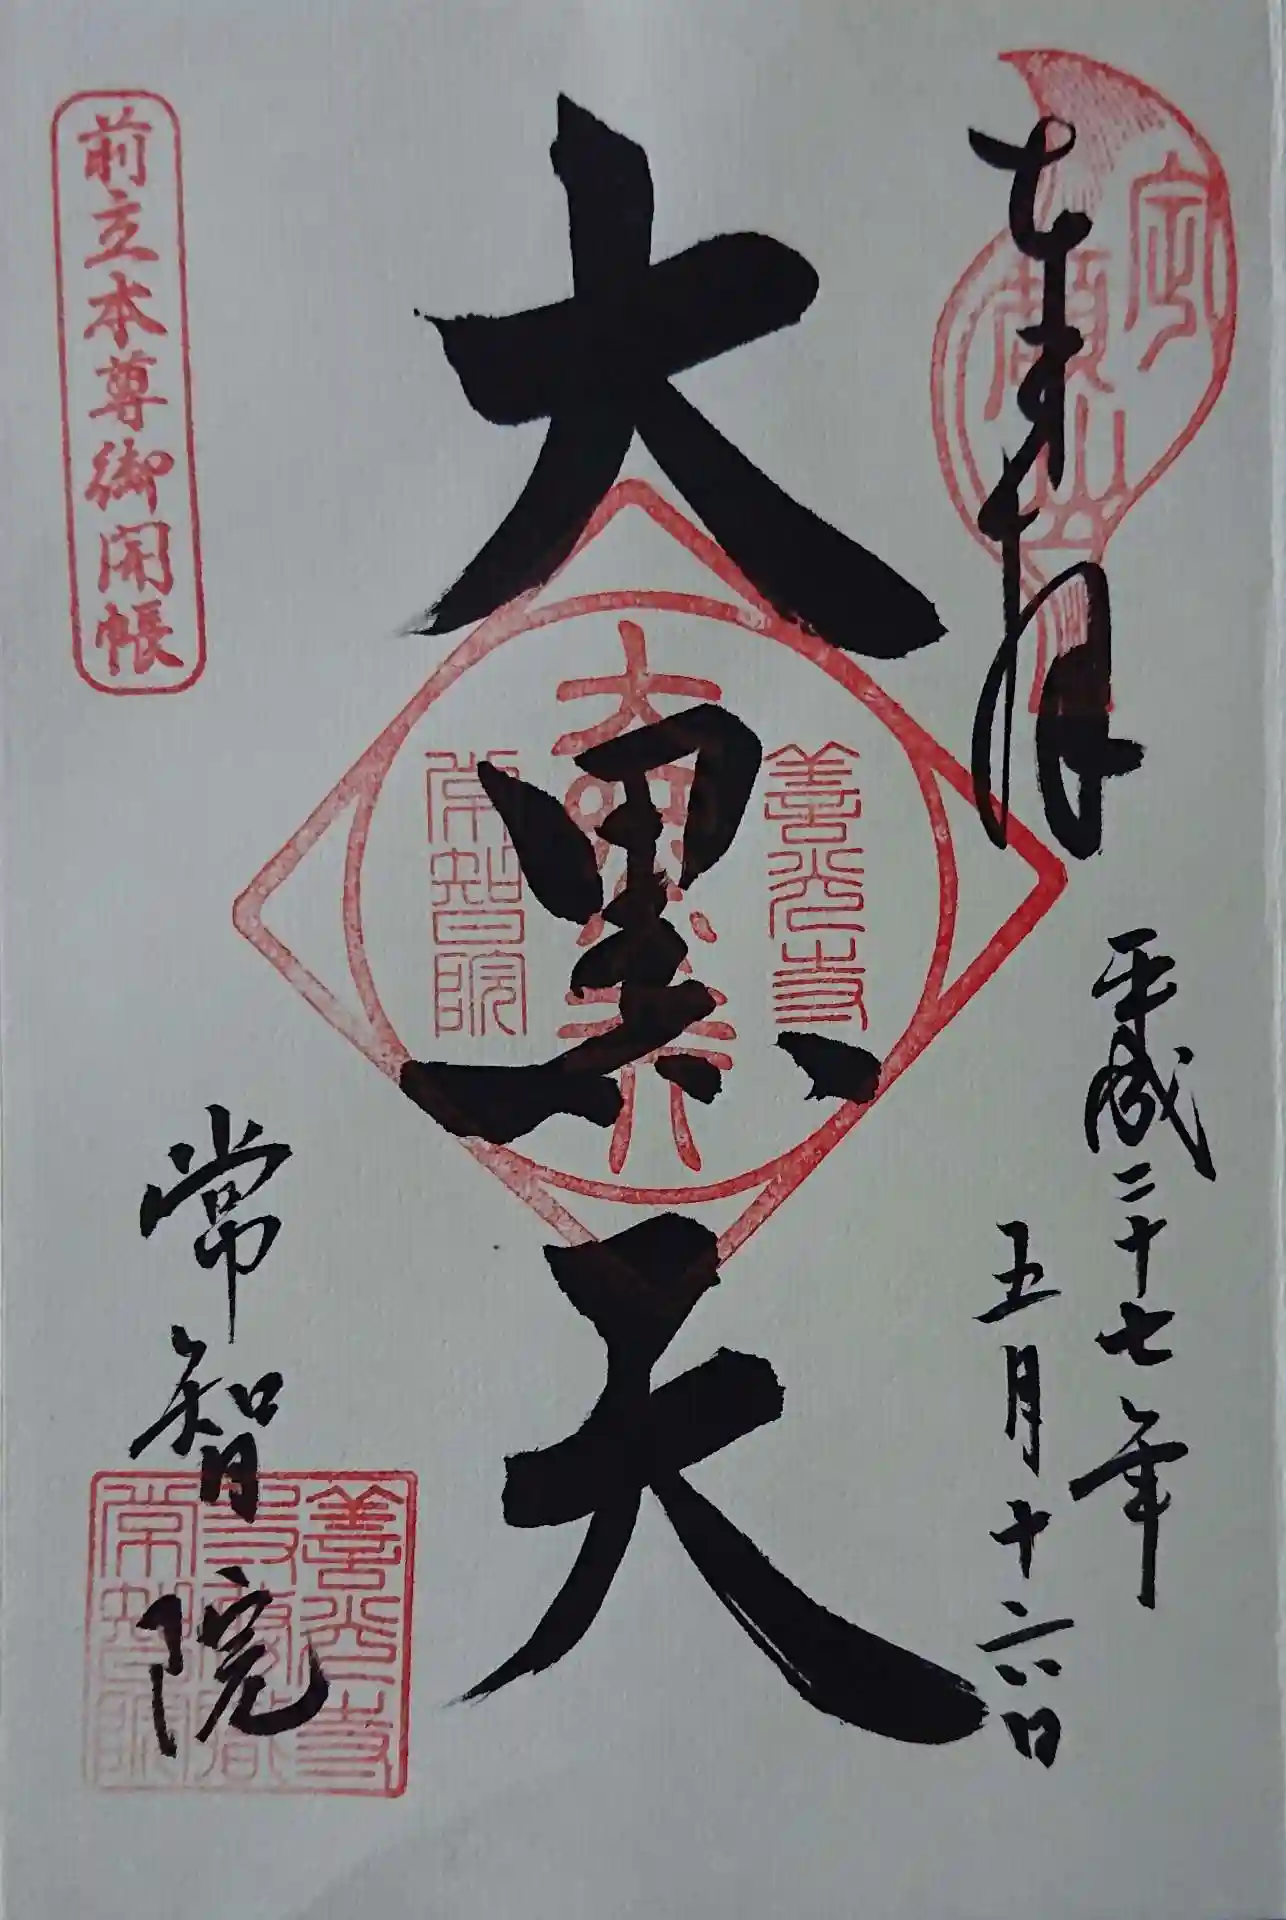 奉拝
平成二十七年
五月十六日
定額山
大黒天
善光寺
大黒天
常智院
前立本尊御開帳
常智院
善光寺
常智院